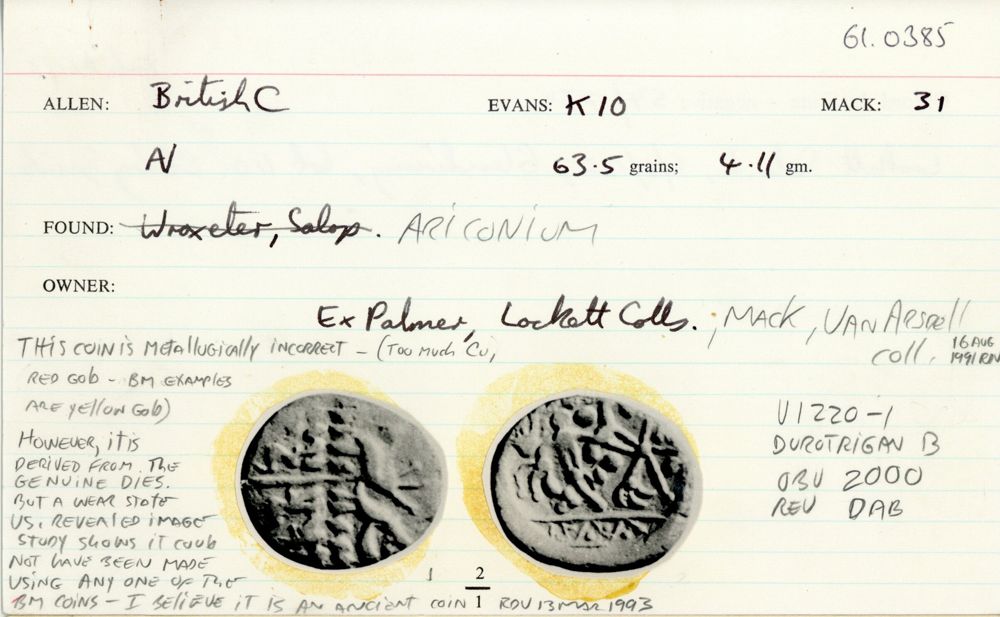 61.0385
ALLEN: British C EVANS: K10 MACK: 31
AV 63.5 grains; 4.11 gm.
FOUND: Wroxeter, Salop. ARICONIUM
OWNER:
Ex Palmer, Lockett Colls.; MACK, VAN ARSDELL
COLL. 16 AUG
1991 RDV
THIS COIN IS METALLUGICALLY INCORRECT - (TOO MUCH CU,
RED GOLD - BM EXAMPLES
ARE YELLOW GOLD)
HOWEVER, IT IS
DERIVED FROM THE
GENUINE DIES.
BUT A WEAR STATE
VS. REVEALED IMAGE
STUDY SHOWS IT COULD
NOT HAVE BEEN MADE
USING ANY ONE OF THE
BM COINS - I BELIEVE IT IS AN ANCIENT COIN RDV 13 MAR 1993
2
1
V1220-1
DUROTRIGAN B
OBV 2000
REV DAB